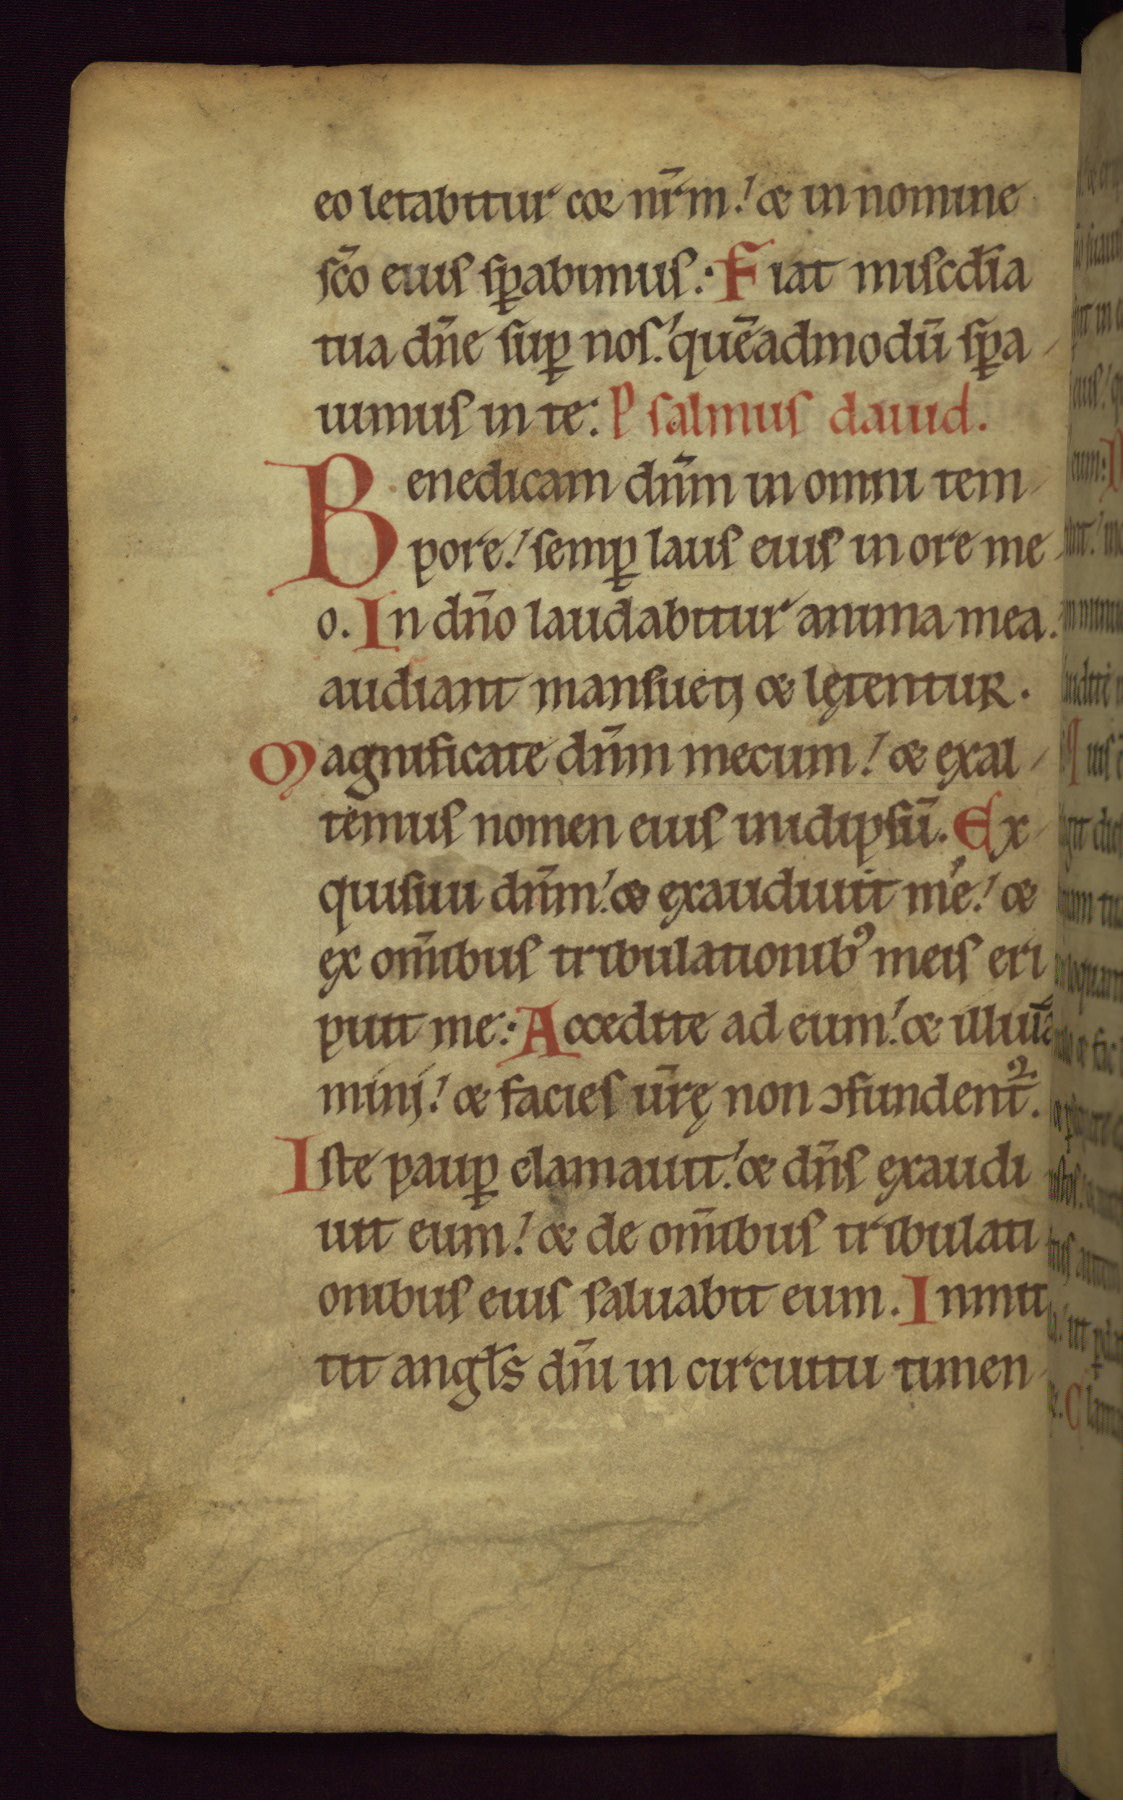 eo letabitur cor nr̄m! & in nomine
sc̄o eius sꝑabimus:· Fiat misc̄dia
tua dn̄e suꝑ nos! quēadmodū sꝑa
uimus in te: Psalmus dauid.
Benedicam dn̄m in omni tem
pore! semꝑ laus eius in ore me
o. In dn̄o laudabitur anima mea.
audiant mansueti & lętentur.
Magnificate dn̄m mecum! & exal
temus nomen eius inidipsū. Ex
quisiui dn̄m! & exaudiuit me! &
ex om̄ibus tribulationibꝰ meis eri
puit me:· Accedite ad eum! & illuḿ̄a
mini! & facies ur̄ę non ↄfundent̄.
Iste pauꝑ clamauit! & dn̄s exaudi
uit eum! & de om̄ibus tribulati
onibus eius saluabit eum. Inmit
tit angl̄s dn̄i in circuitu timen